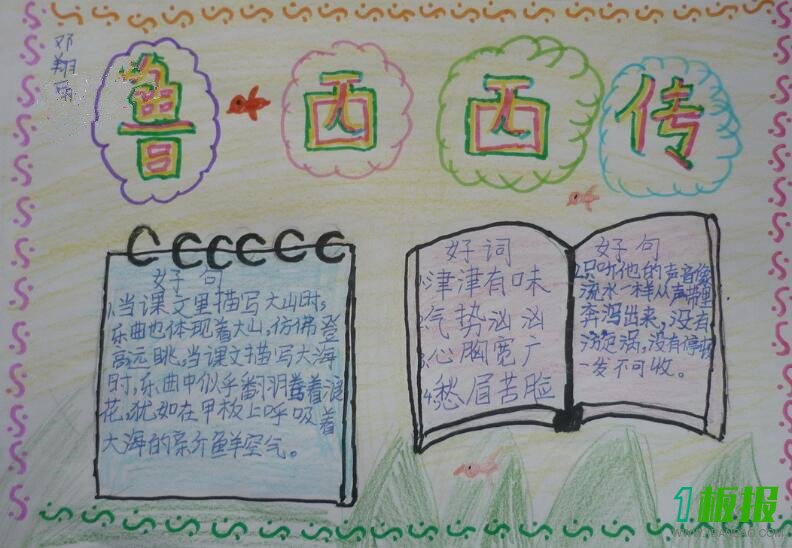 邓翔
鲁西西传
好句
1.当课文里描写大山时,
乐曲也体现着大山,仿佛登
高远眺,当课文描写大海
时,乐曲中似乎翻羽着浪
花,犹如在甲板上呼吸着
大海的新鲜空气。
好词
1.津津有味
2.气势汹汹
3.心胸宽广
4.愁眉苦脸
好句
只听他的声音像
流水一样从声带里
奔泻出来,没有
漩涡,没有停顿
一发不可收。
1板报
WWW.1BANBAO.COM